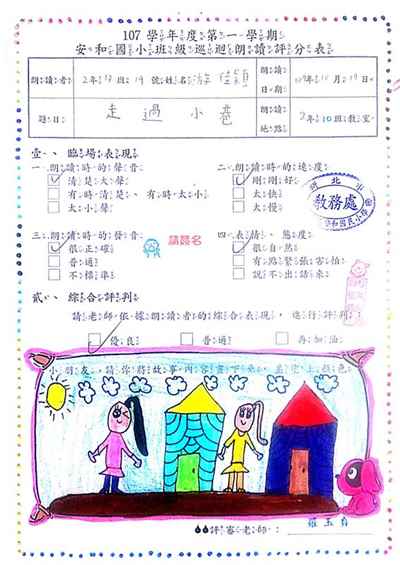 107學年度第一學期
安和國小班級巡迴朗讀評分表
朗讀者
2年 班19號姓名 游佳穎
朗讀日期
年 月 日
題目
走過小巷
朗讀地點
2年10班教室
壹、臨場表現
一、朗讀時的聲音
清楚大聲
有時大、有時太小
太小聲
二、朗讀時的速度
剛剛好
太快
太慢
教務處
三、朗讀時的發音
很正確
普通
不標準
請簽名
四、表情、態度
很自然
有點緊張害怕
說不出話來
貳、綜合評判
請老師依據朗讀者的綜合表現,進行評判:
優良
普通
再加油
小朋友,請你將故事內容畫下來,並塗上顏色
評審老師: